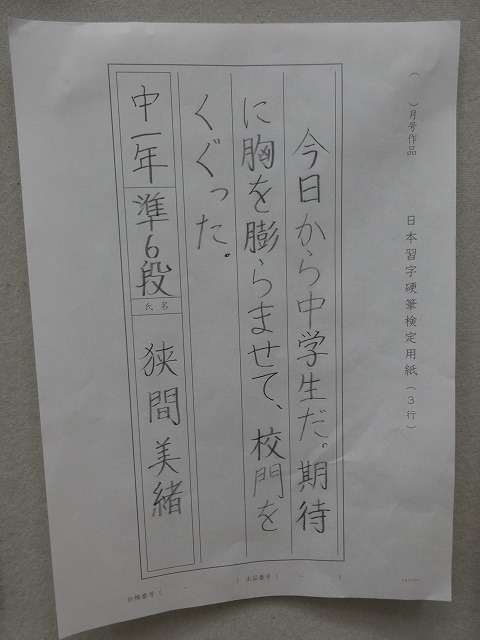 （　）月号作品　日本習字硬筆検定用紙（3行）
今日から中学生だ。期待
に胸を膨らませて、校門を
くぐった。
中一年　準6段　氏名　狭間美緒
出品番号（　-　）